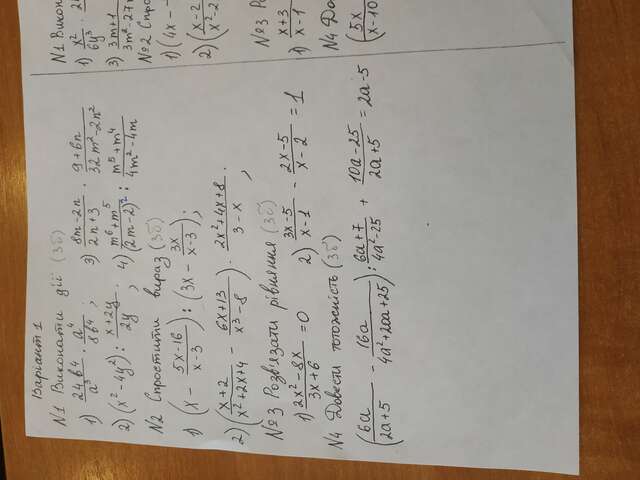 Варіант 1
№1 Виконати дії (3б)
1) 24b⁴/a³ · a⁴/8b⁴ ; 3) (8m-2n)/(2n+3) · (9+6n)/(32m²-2n²)
2) (x²-4y²) : (x+2y)/2y ; 4) (m⁶+m⁵)/(2m-2)² : (m⁵+m⁴)/(4m²-4m)
№2 Спростити вираз (3б)
1) (x - (5x-16)/(x-3)) : (3x - 3x/(x-3)) ;
2) ((x+2)/(x²+2x+4) - (6x+13)/(x³-8)) · (2x²+4x+8)/(3-x) ;
№3 Розв'язати рівняння (3б)
1) (2x²-8x)/(3x+6) = 0 2) (3x-5)/(x-1) - (2x-5)/(x-2) = 1
№4 Довести тотожність (3б)
(6a/(2a+5) - 16a/(4a²+20a+25)) : (6a+7)/(4a²-25) + (10a-25)/(2a+5) = 2a-5
№1 Викон
1) x²/6y³ ·
3) (3m+1)/
№2 Спро
1) (4x -
2) (
№3 Р
1) (x+3)/(x-1)
№4 До
(5x/(x-10